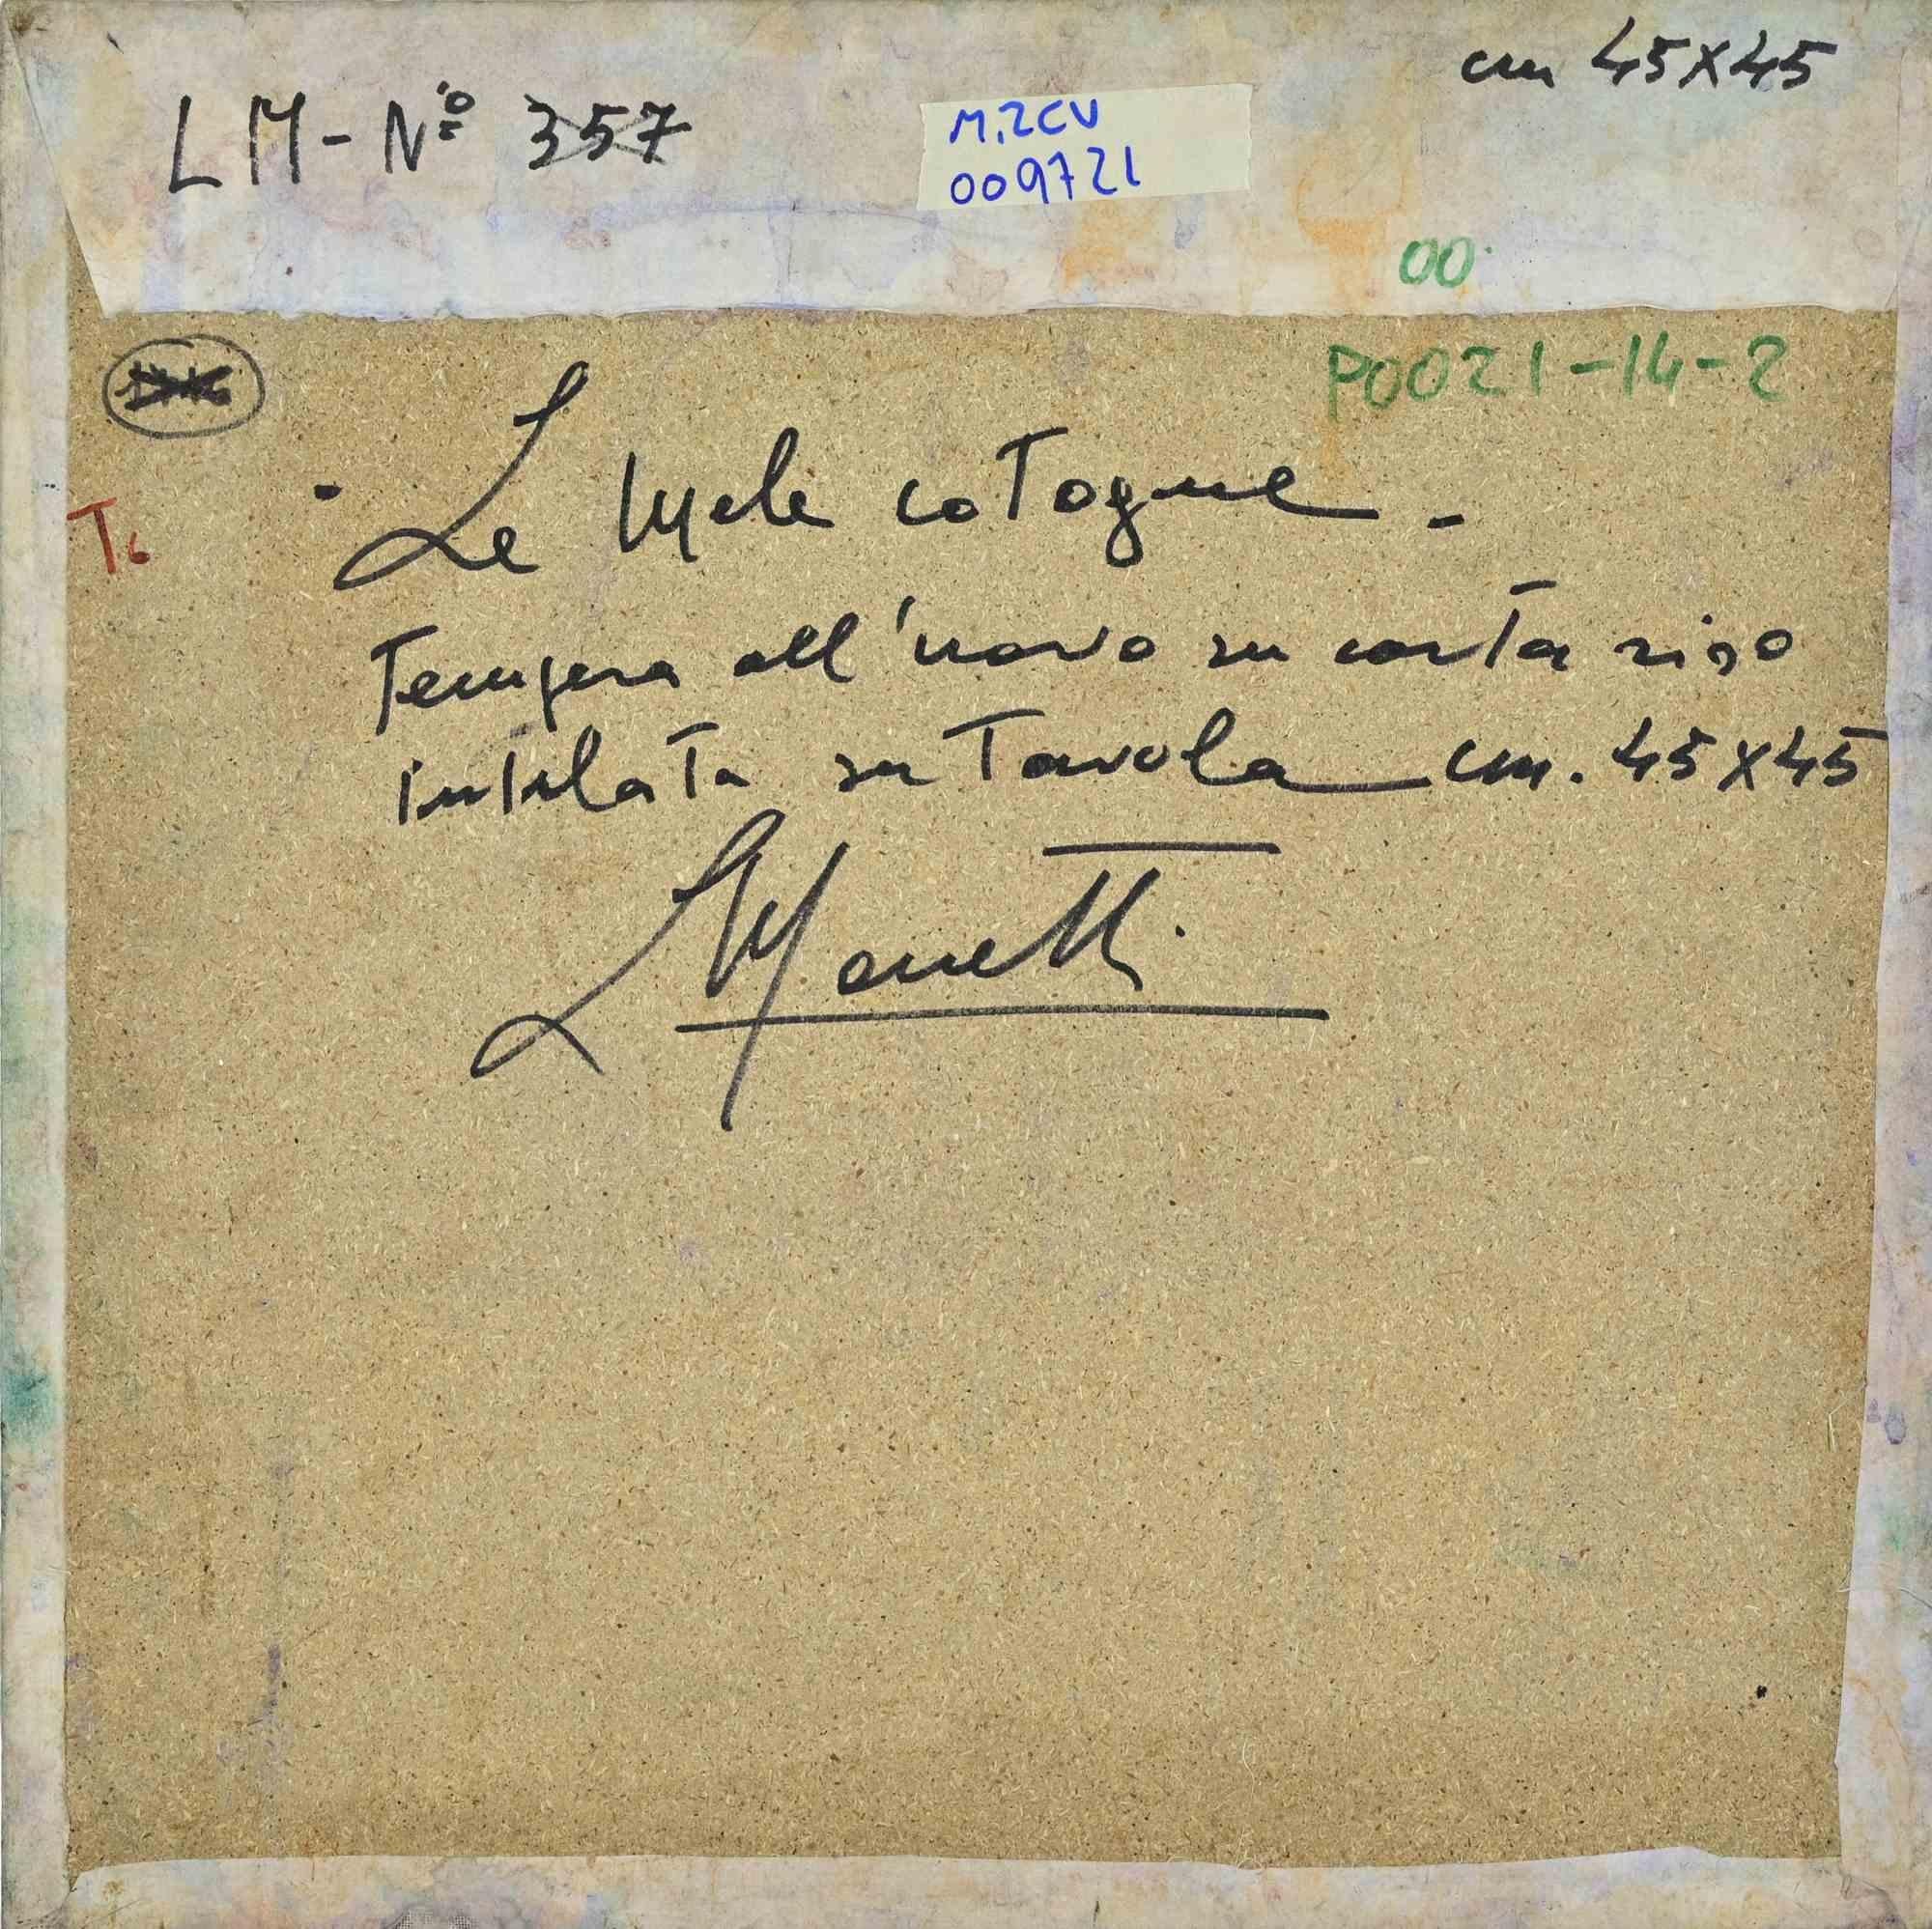 cm 45x45
LM - Nº 357
M.2CV
009721
00
P0021-14-2
T6
- Le Mele cotogne -
Tempera all'uovo su carta riso
intelata su Tavola cm. 45x45
L Monetti